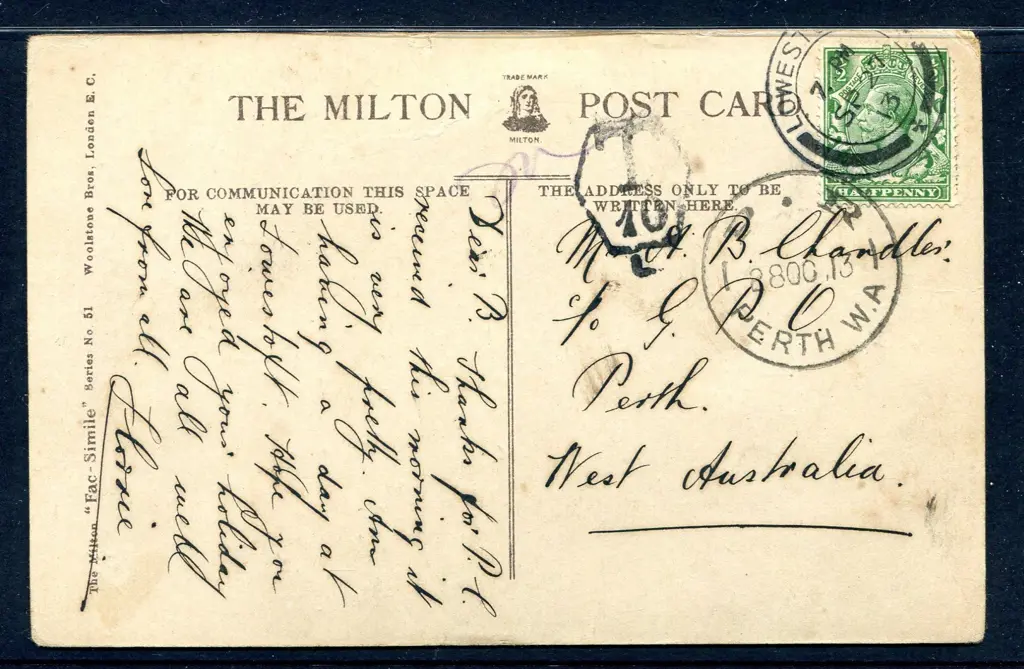 THE MILTON POST CARD
TRADE MARK
MILTON.
FOR COMMUNICATION THIS SPACE
MAY BE USED.
THE ADDRESS ONLY TO BE
WRITTEN HERE.
The Milton "Fac-Simile" Series No 51 Woolstone Bros, London E.C.
Dear B. Thanks for P.C.
received this morning it
is very pretty. Am
having a day at
Lowestoft. Hope you
enjoyed your holiday
We are all well
Love from all.
Florrie
A. B. Chandler.
c/o G. P. O.
Perth.
West Australia.
LOWEST
7 PM
SP
13
HALFPENNY
T
10
PERTH W.A
OC 13